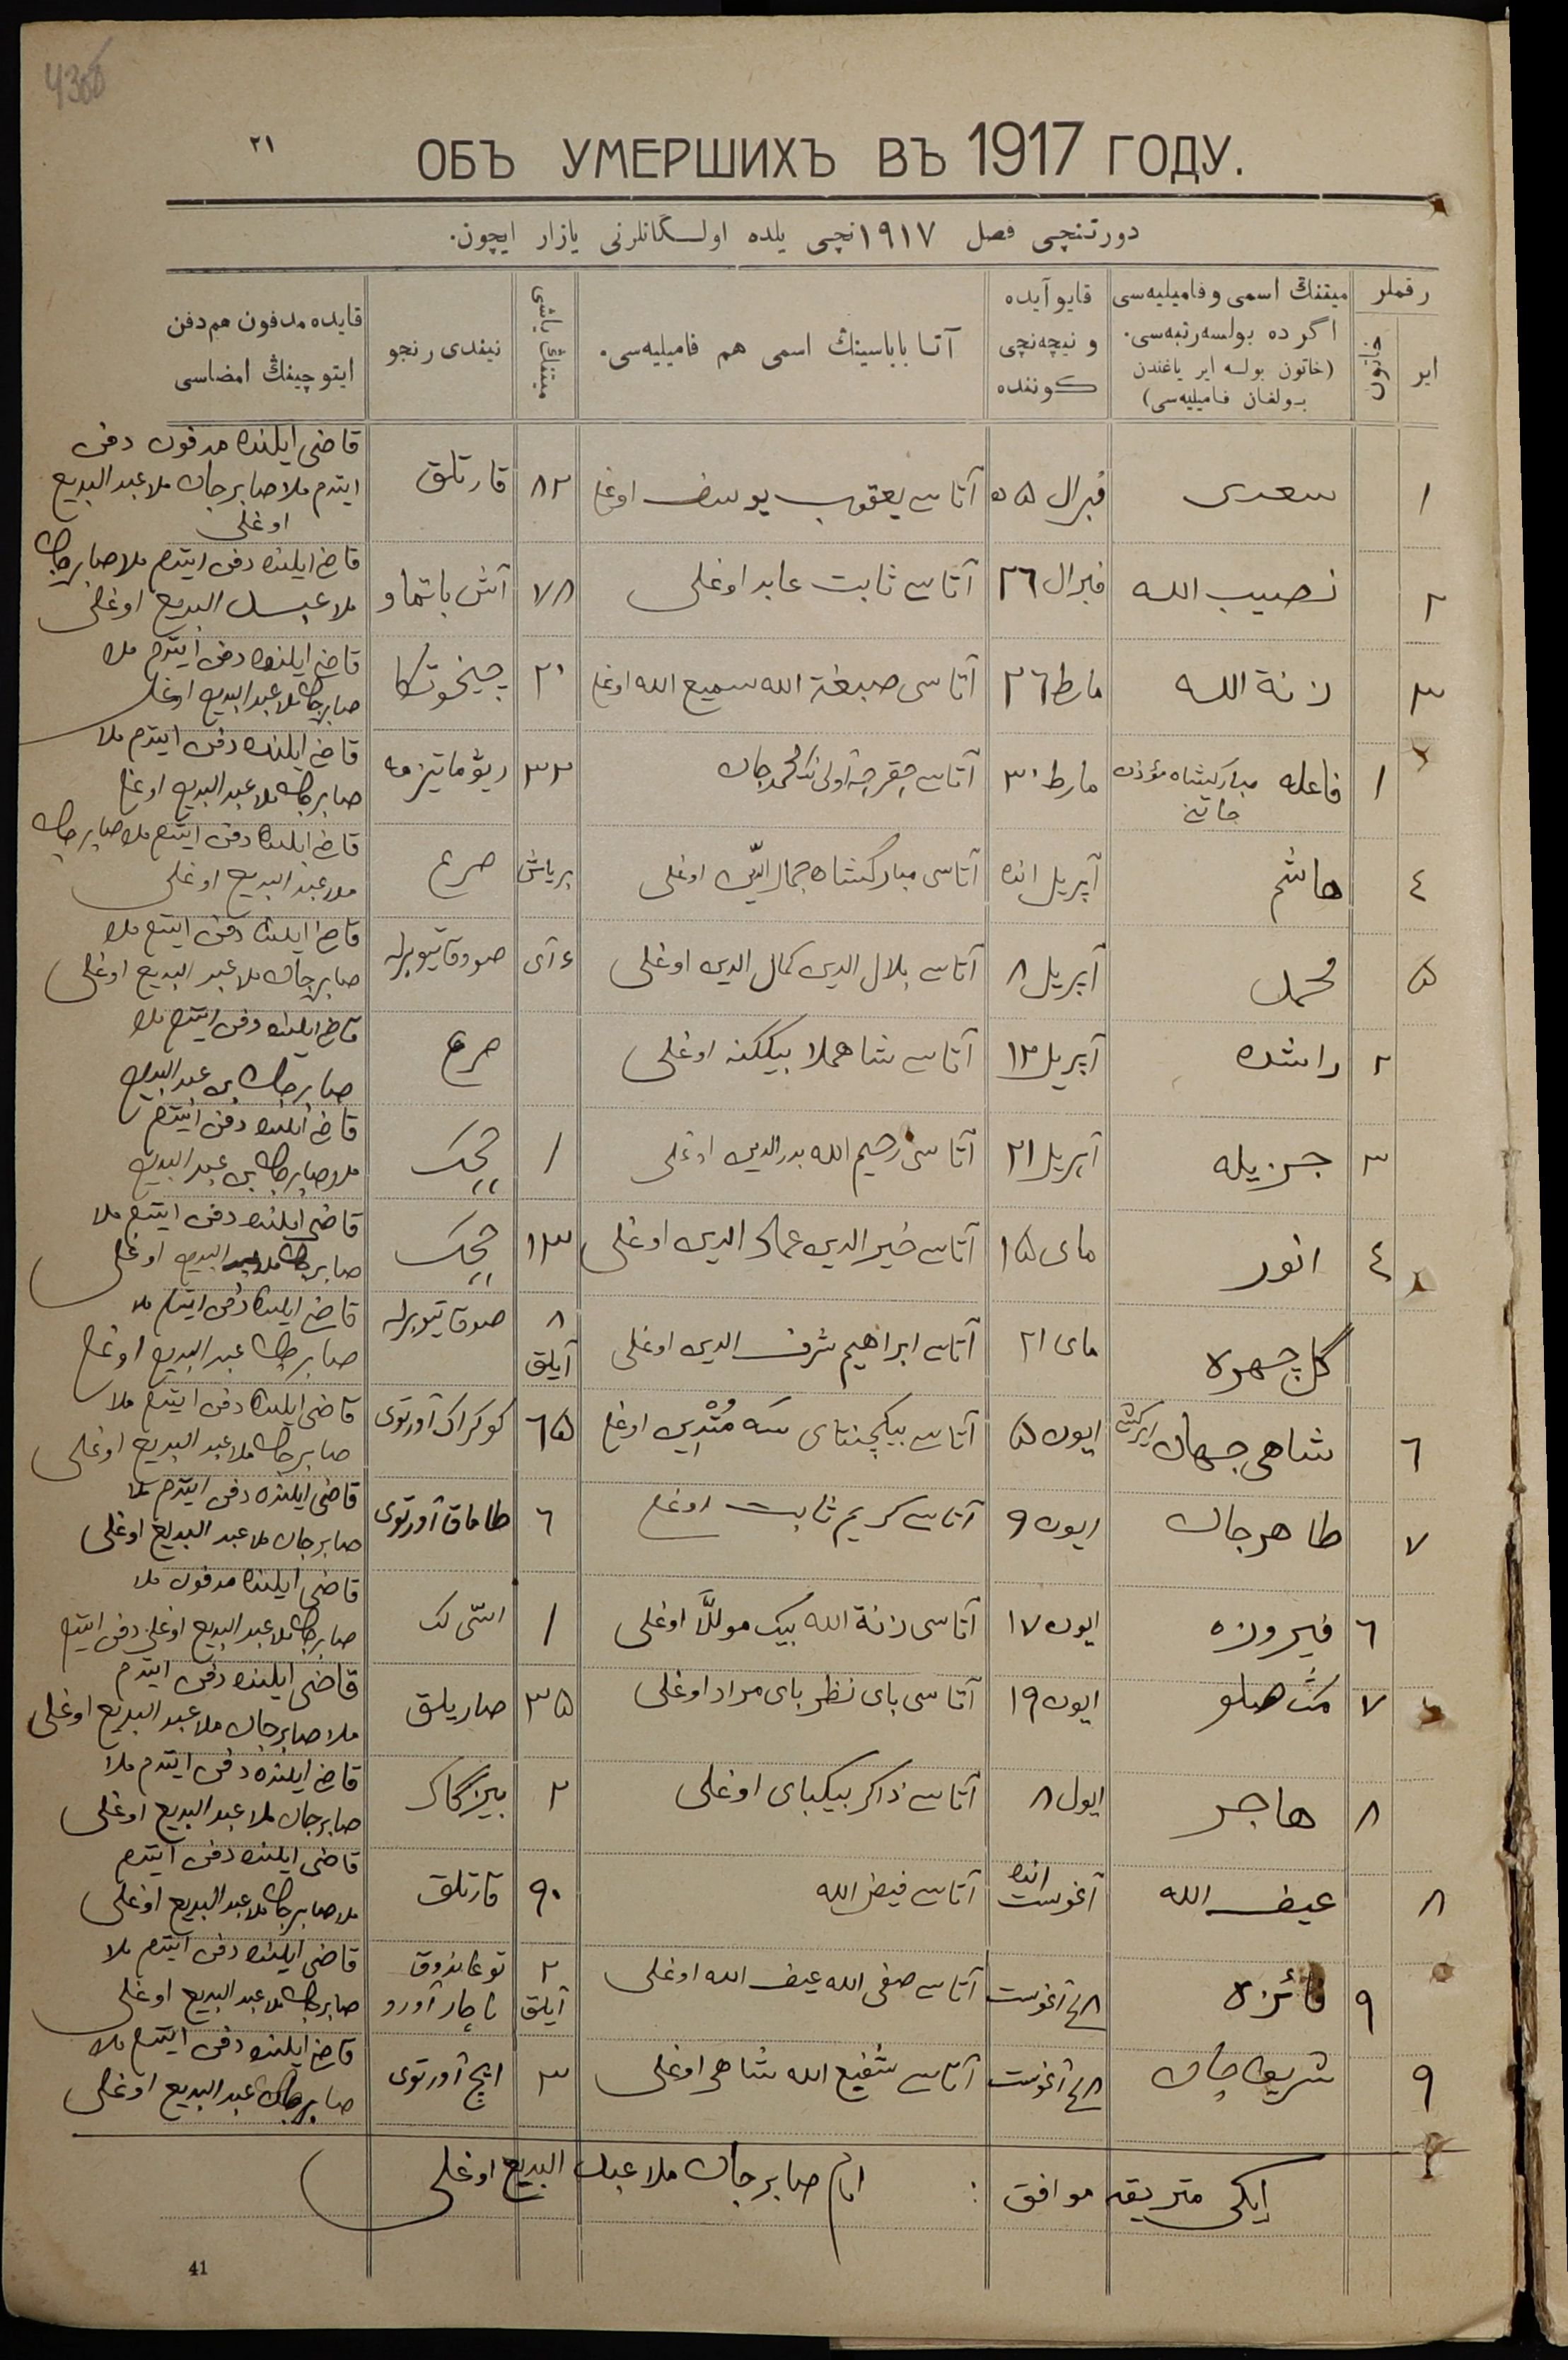 43об
٢١
ОБЪ УМЕРШИХЪ ВЪ 1917 ГОДУ.
دورتنچی فصل ١٩١٧نچی يلده اولسگانلرنی يازار ايچون.
رقملر
اير
خاتون
ميتننڭ اسمی و فاميليه‌سی
اگر ده بولسه رتبه‌سی.
(خاتون بولسه اير ياغندن
بولغان فاميليه‌سی)
قايو آيده
و نيچه‌نچی
كوننده
آتا باباسينڭ اسمی هم فاميليه‌سی.
ميتننڭ ياشی
نيندی رنجو
قايده مدفون هم دفن
ايتوچينڭ امضاسی
١ سعدی فبرال ٥ ٥ آتاسی يعقوب يوسف اوغلی ٨٢ قارتلق قاضی ايلنده مدفون دفن
ايتدم ملا صابرجان ملا عبد البديع
اوغلی
٢ نصيب الله فبرال ٢٦ آتاسی ثابت عابد اوغلی ٧٨ آش باتماو قاضی ايلنده دفن ايتدم ملا صابرجان
ملا عبد البديع اوغلی
٣ زنة الله مارط ٢٦ آتاسی صبغة الله سميع الله اوغلی ٢٠ چيخوتكا قاضی ايلنده دفن ايتدم ملا
صابرجان ملا عبد البديع اوغلی
١ فاعله مباركشاه مؤذن خاتنی مارط ٣٠ ٣٣ ريؤماتيزمه قاضی ايلنده دفن ايتدم ملا
صابرجان ملا عبد البديع اوغلی
٤ هاشم آپريل انده آتاسی مباركشاه جمال الدين اوغلی بر ياش صرع قاضی ايلنده دفن ايتدم ملا صابرجان
ملا عبد البديع اوغلی
٥ محمد آپريل ٨ آتاسی بلال الدين كمال الدين اوغلی ٤ آی صوقا تيوبرله قاضی ايلنده دفن ايتدم ملا
صابرجان ملا عبد البديع اوغلی
٢ راشده آپريل ١٣ آتاسی شاهملا بيككنه اوغلی صرع قاضی ايلنده دفن ايتدم ملا
صابرجان بن عبد البديع
٣ جزيله آپريل ٢١ آتاسی رحيم الله بدر الدين اوغلی ١ چچك قاضی ايلنده دفن ايتدم
ملا صابرجان بن عبد البديع
٤ انور مای ١٥ آتاسی خير الدين عماد الدين اوغلی ١٣ چچك قاضی ايلنده دفن ايتدم ملا
صابرجان ملا عبد البديع اوغلی
گل چهره مای ٢١ آتاسی ابراهيم شرف الدين اوغلی ٨ آيلق صوقا تيوبرله قاضی ايلنده دفن ايتدم ملا
صابرجان عبد البديع اوغلی
٦ شاهی جهان ايون ٥ ٦٥ كوكراك آورتوی قاضی ايلنده دفن ايتدم ملا
صابرجان ملا عبد البديع اوغلی
٧ طاهرجان ايون ٩ آتاسی كريم ثابت اوغلی ٦ طاماق آورتوی قاضی ايلنده دفن ايتدم ملا
صابرجان ملا عبد البديع اوغلی
٦ فيروزه ايون ١٧ آتاسی زنة الله بيك موللا اوغلی ١ استی لك قاضی ايلنده مدفون ملا
صابرجان ملا عبد البديع اوغلی دفن ايتدم
٧ ايون ١٩ آتاسی بای نظر بای مراد اوغلی ٣٥ صاريلق قاضی ايلنده دفن ايتدم
ملا صابرجان ملا عبد البديع اوغلی
٨ هاجر ايول ٨ آتاسی ذاكر بيكبای اوغلی ٢ بيزگاك قاضی ايلنده دفن ايتدم ملا
صابرجان ملا عبد البديع اوغلی
٨ عيض الله آغوست انده آتاسی فيض الله ٩٠ قارتلق قاضی ايلنده دفن ايتدم
ملا صابرجان ملا عبد البديع اوغلی
٩ فائزه ٨ نچی آغوست آتاسی صفی الله عيض الله اوغلی ٢ آيلق توغاندوق ناچار آورو قاضی ايلنده دفن ايتدم ملا
صابرجان ملا عبد البديع اوغلی
٩ شريف جان ٨ نچی آغوست آتاسی شفيع الله شاهی اوغلی ٣ ايچ آورتوی قاضی ايلنده دفن ايتدم ملا
صابرجان عبد البديع اوغلی
ايكی متريقه موافق : امام صابرجان ملا عبد البديع اوغلی
41